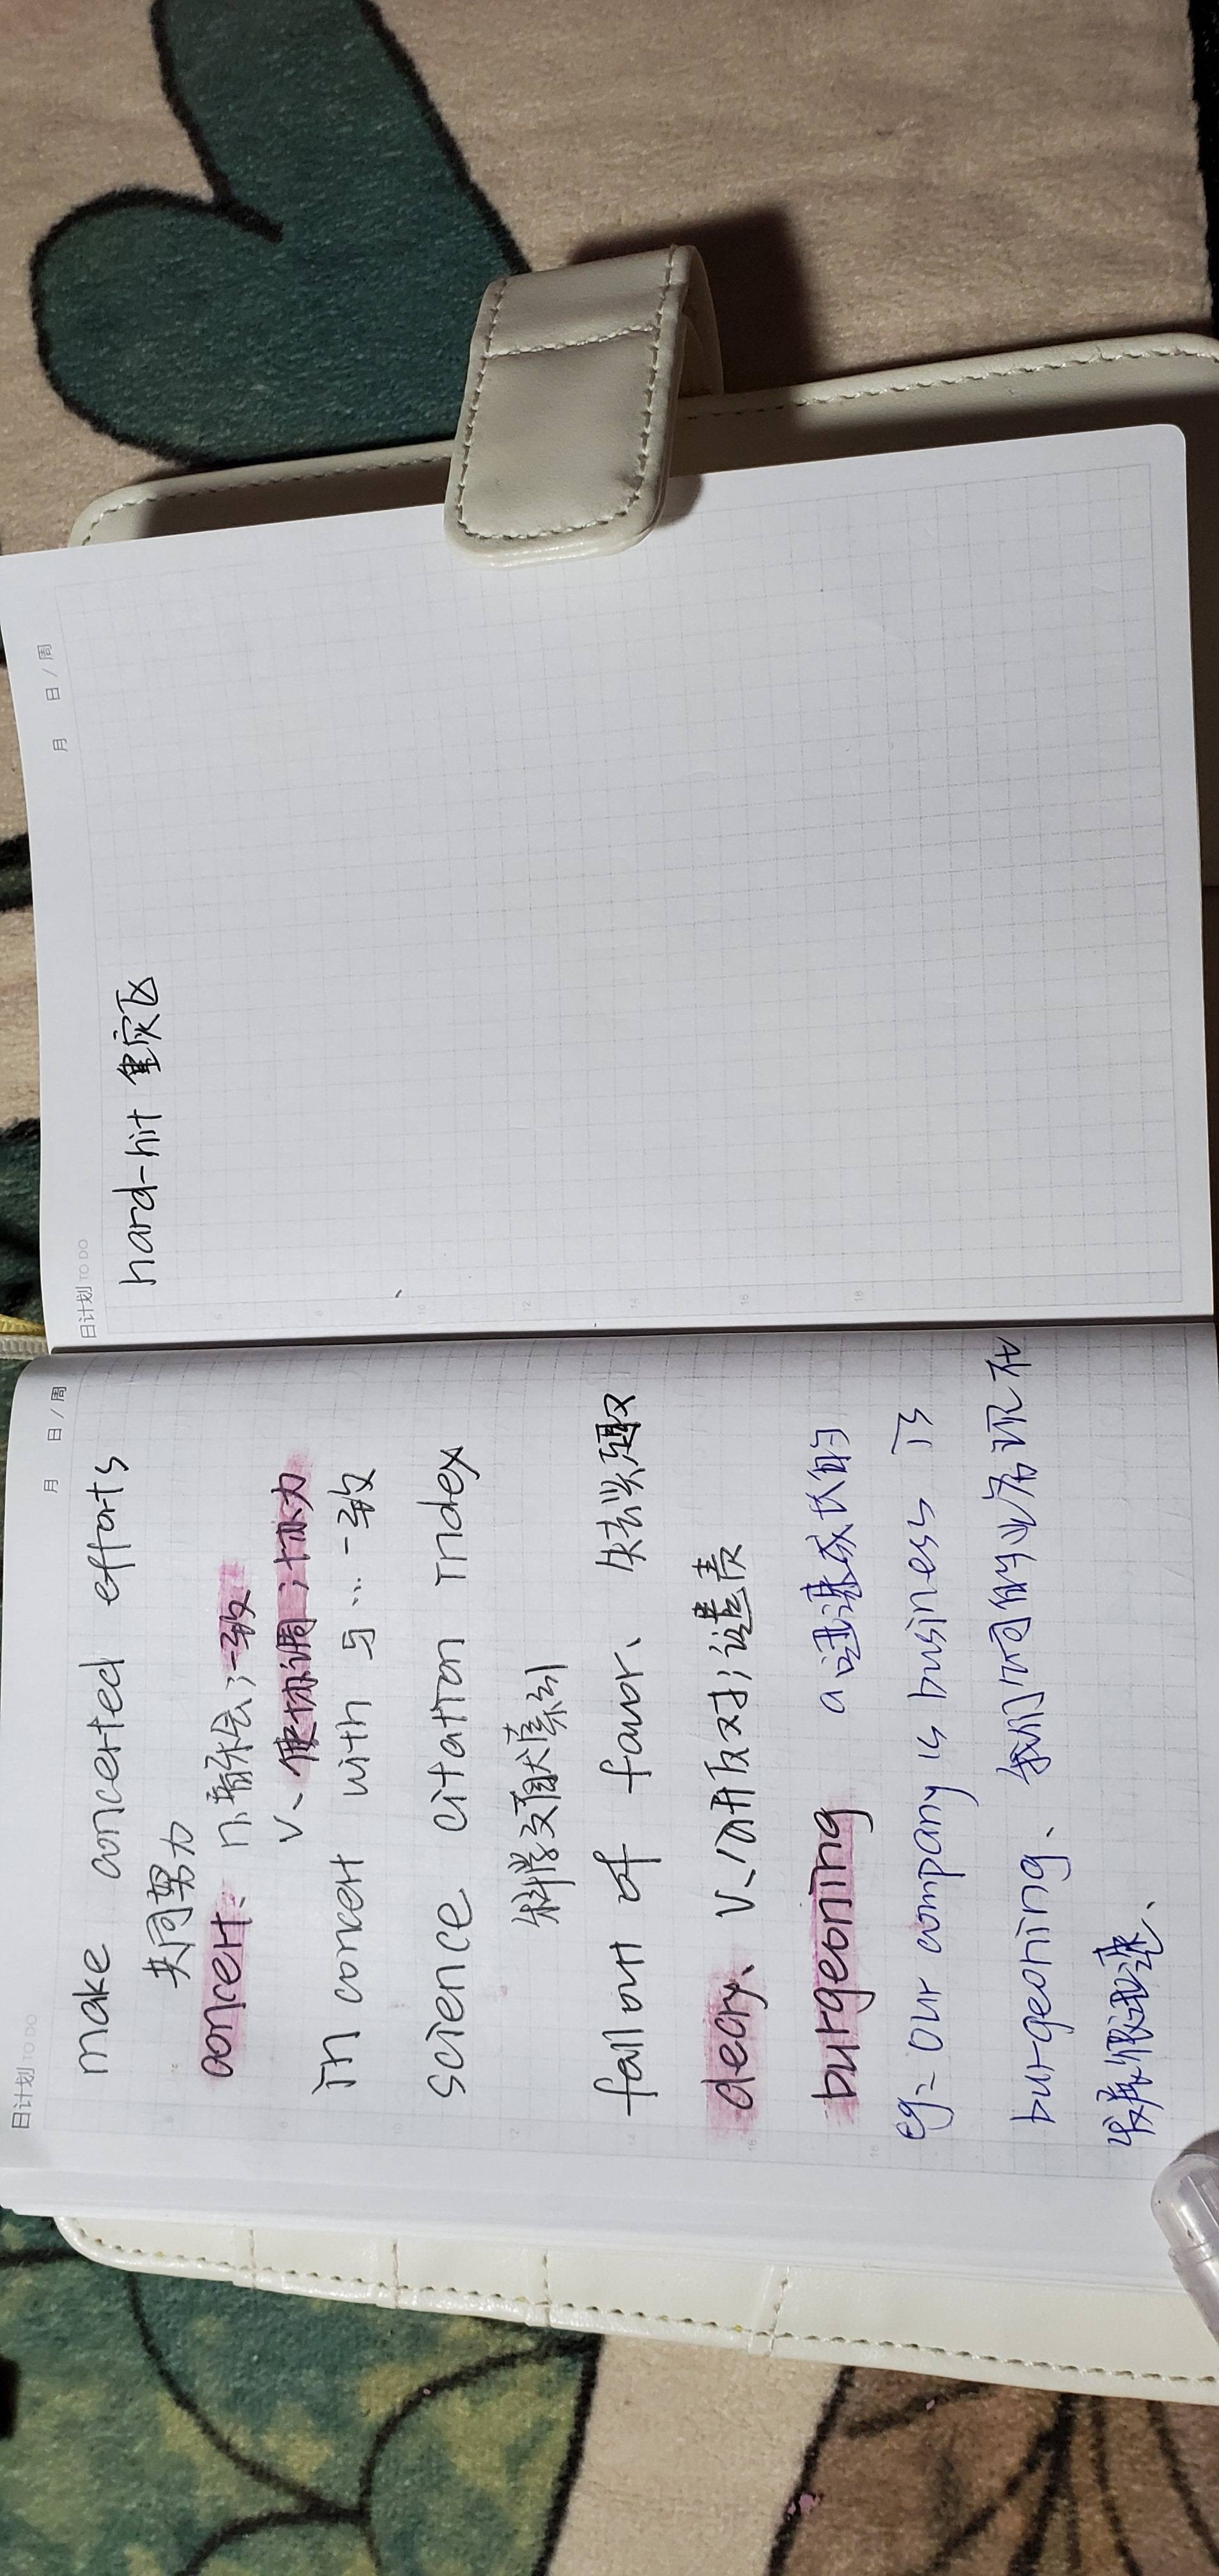 日计划 TO DO 月 日 / 周
make concerted efforts
共同努力
concert、n.音乐会；一致
v、使协调；协力
in concert with 与...一致
science citation index
科学文献索引
fall out of favor、失去兴趣
decry、v、公开反对；谴责
burgeoning a 迅速成长的
eg= our company is business is
burgeoning、我们公司的业务现在
发展很迅速、
6
8
10
12
14
16
18
日计划 TO DO 月 日 / 周
hard-hit 重灾区
6
8
10
12
14
16
18